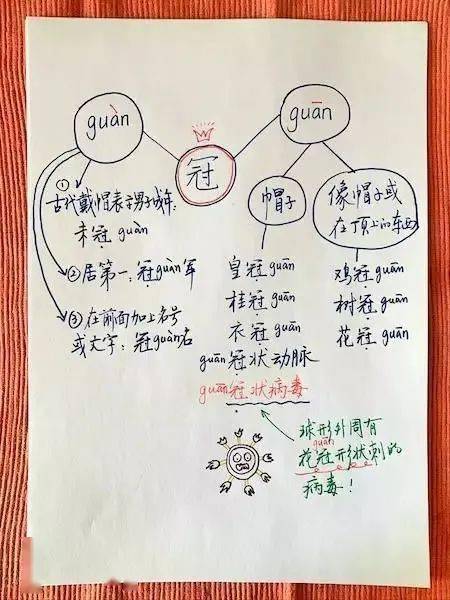 guàn
冠
guān
①
古代戴帽表示男子成年:
未冠 guàn
②居第一:冠guàn军
③在前面加上名号
或文字:冠guàn名
帽子
皇冠guān
桂冠guān
衣冠guān
guān冠状动脉
guān冠状病毒
像帽子或
在顶上的东西
鸡冠guān
树冠guān
花冠guān
球形外周有
guān
花冠形状刺的
病毒!